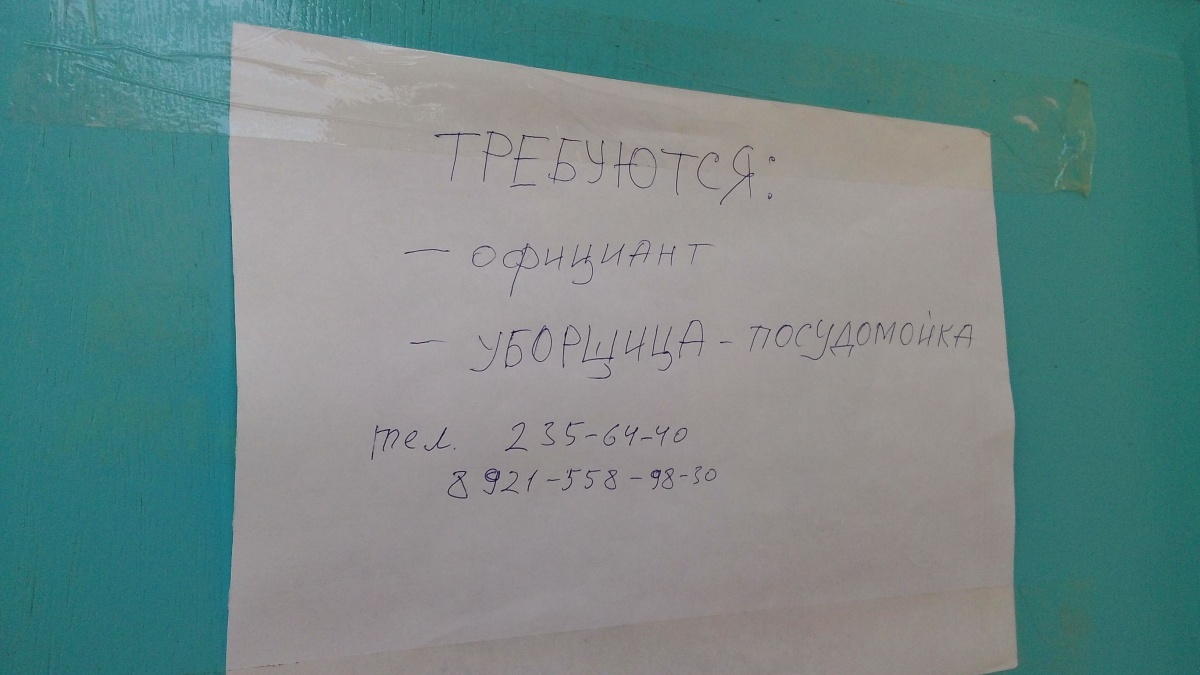 ТРЕБУЮТСЯ:
— ОФИЦИАНТ
— УБОРЩИЦА - ПОСУДОМОЙКА
тел. 235-64-40
8 921-558-98-30